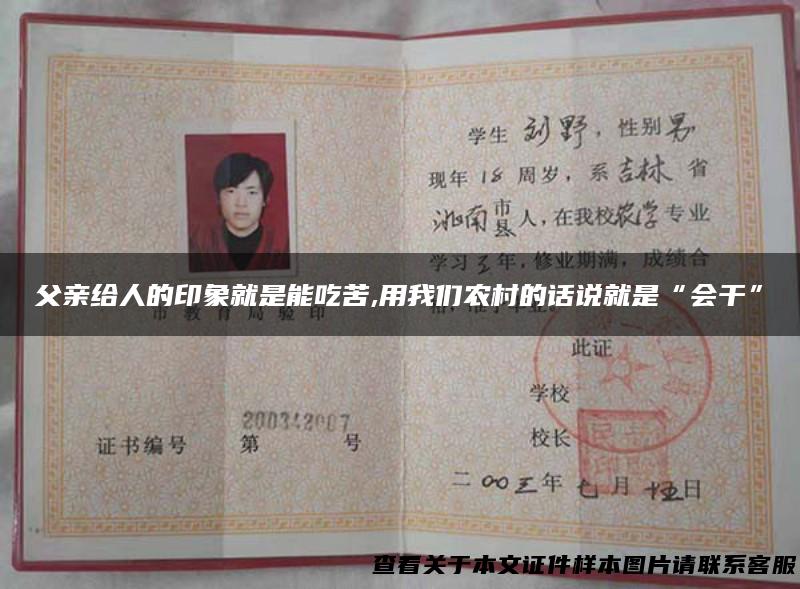 学生 刘野，性别男
现年 18 周岁，系吉林 省
洮南 市县 人，在我校农学专业
学习三年，修业期满，成绩合
父亲给人的印象就是能吃苦,用我们农村的话说就是“会干”
市教育局验印
格，准予毕业。
此证
学校
校长
证书编号 第 200342007 号
二〇〇三年七月十五日
查看关于本文证件样本图片请联系客服